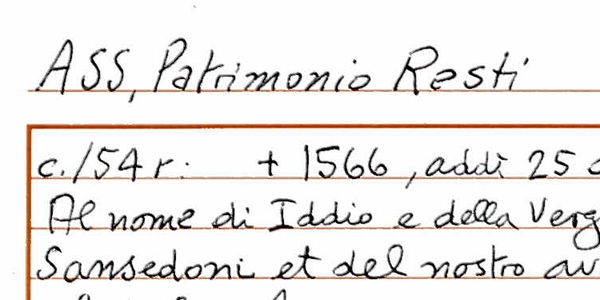 ASS, Patrimonio Resti
c. 154 r: + 1566, addì 25
Al nome di Iddio e della Verg
Sansedoni et del nostro av